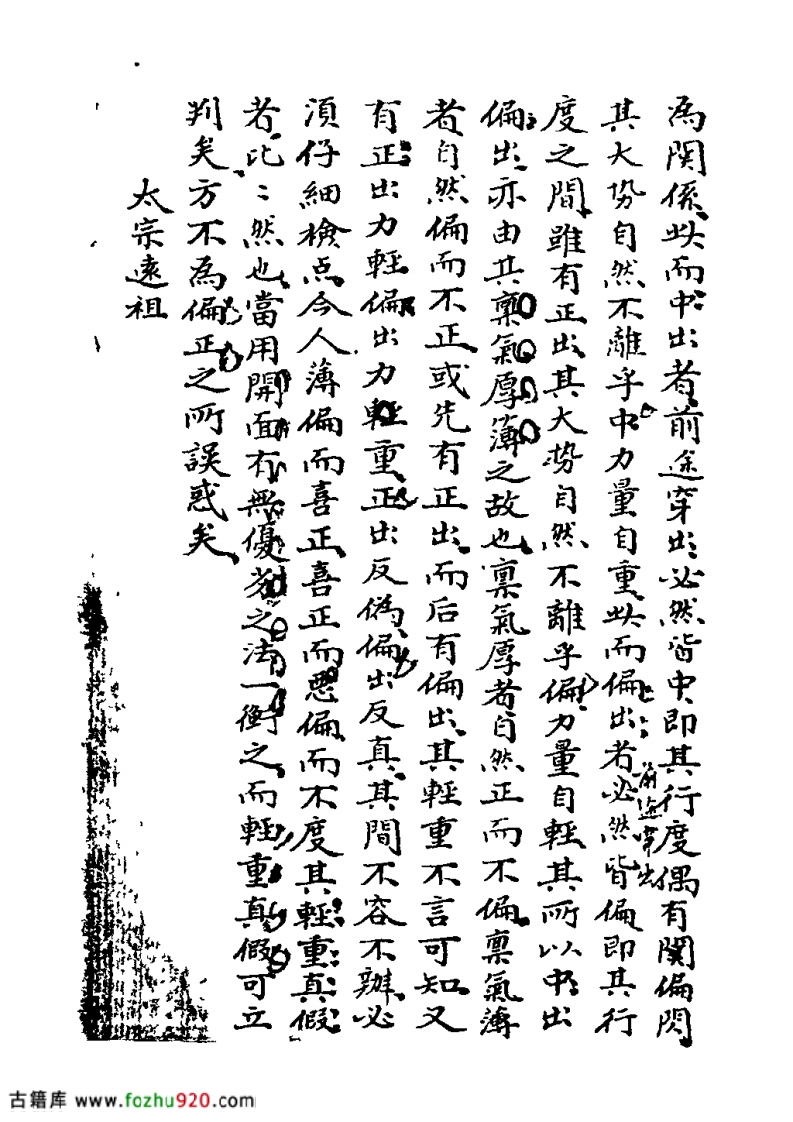 為関係此而中出者前途穿出必然皆中即其行度偶有関偏閃
其大势自然不離乎中力量自重此而偏出者必然皆偏即其行
前途穿出
度之間雖有正出其大势自然不離乎偏力量自輕其所以中出
偏出亦由其禀氣厚薄之故也禀氣厚者自然正而不偏禀氣薄
者自然偏而不正或先有正出而后有偏出其輕重不言可知又
有正出力輕偏出力重正出反偽偏出反真其間不容不辨必
須仔細檢点今人薄偏而喜正喜正而惡偏而不度其輕重真假
者比：然也當用開面有無優劣之法一衡之而輕重真假可立
判矣方不為偏正之所誤惑矣
太宗遠祖
古籍库 www.fozhu920.com